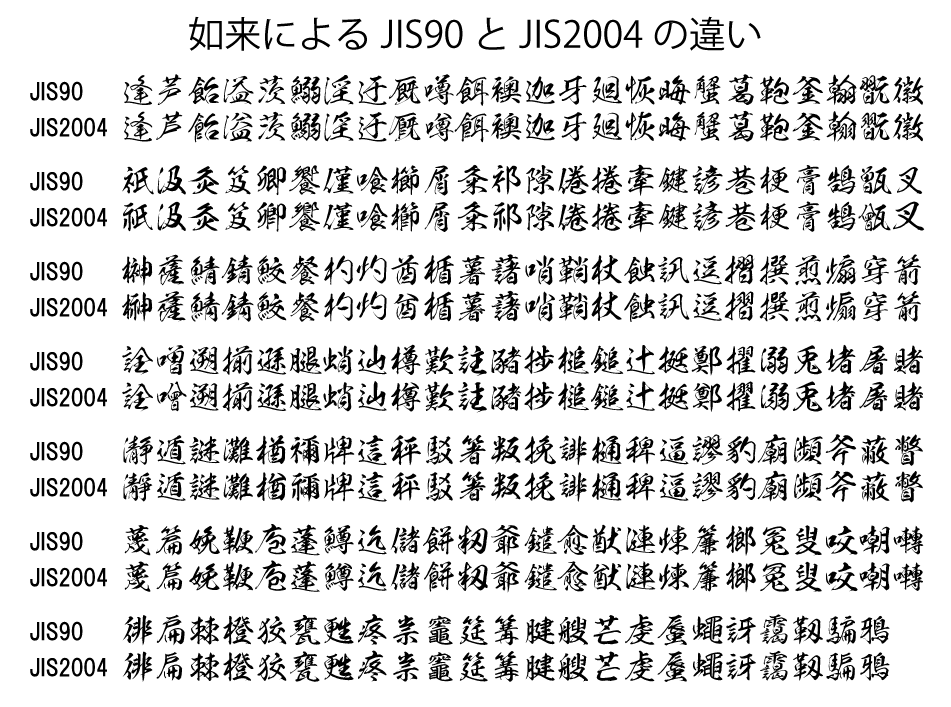 如来による JIS90 と JIS2004 の違い
JIS90 逢芦飴溢茨鰯淫迂厩噂餌襖迦牙廻恢晦蟹葛鞄釜翰翫徽
JIS2004 逢芦飴溢茨鰯淫迂厩噂餌襖迦牙廻恢晦蟹葛鞄釜翰翫徽
JIS90 祇汲灸笈卿饗僅喰櫛屑粂祁隙倦捲牽鍵諺巷梗膏鵠甑叉
JIS2004 祇汲灸笈卿饗僅喰櫛屑粂祁隙倦捲牽鍵諺巷梗膏鵠甑叉
JIS90 榊薩鯖錆鮫餐杓灼酋楯薯藷哨鞘杖蝕訊逗摺撰煎煽穿箭
JIS2004 榊薩鯖錆鮫餐杓灼酋楯薯藷哨鞘杖蝕訊逗摺撰煎煽穿箭
JIS90 詮噌遡揃遜腿蛸辿樽歎註瀦捗槌鎚辻挺鄭擢溺兎堵屠賭
JIS2004 詮噌遡揃遜腿蛸辿樽歎註瀦捗槌鎚辻挺鄭擢溺兎堵屠賭
JIS90 瀞遁謎灘楢禰牌這秤駁箸叛挽誹樋稗逼謬豹廟瀕斧蔽瞥
JIS2004 瀞遁謎灘楢禰牌這秤駁箸叛挽誹樋稗逼謬豹廟瀕斧蔽瞥
JIS90 蔑篇娩鞭庖蓬鱒迄儲餅籾爺鑓愈猷漣煉簾榔冤叟咬嘲囀
JIS2004 蔑篇娩鞭庖蓬鱒迄儲餅籾爺鑓愈猷漣煉簾榔冤叟咬嘲囀
JIS90 徘扁棘橙狡甕甦疼祟竈筵篝腱艘芒虔蜃蠅訝靄靱騙鴉
JIS2004 徘扁棘橙狡甕甦疼祟竈筵篝腱艘芒虔蜃蠅訝靄靱騙鴉